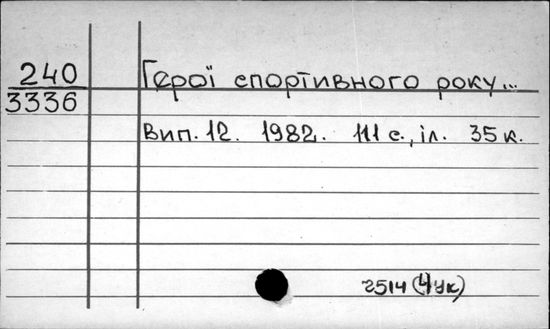 240
3336
Герої спортивного року...
Вип. 12. 1982. 111 с., іл. 35 к.
2514 (4 ук)